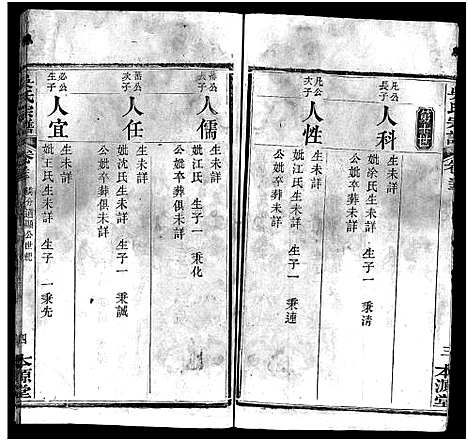 第十世
凡公長子
人科
生未詳
妣涂氏未詳 生子一 秉清
公妣卒葬未詳
凡公次子
人性
生未詳
妣江氏未詳 生子一 秉連
公妣卒葬未詳
三 本源堂
人儒
生未詳
妣江氏 生子一 秉化
公妣卒葬俱未詳
次子
人任
生未詳
妣沈氏未詳 生子一 秉誠
公妣卒葬俱未詳
必公生子
人宜
生未詳
妣王氏未詳 生子一 秉先
公妣卒葬俱未詳
氏宗譜
四 本源堂